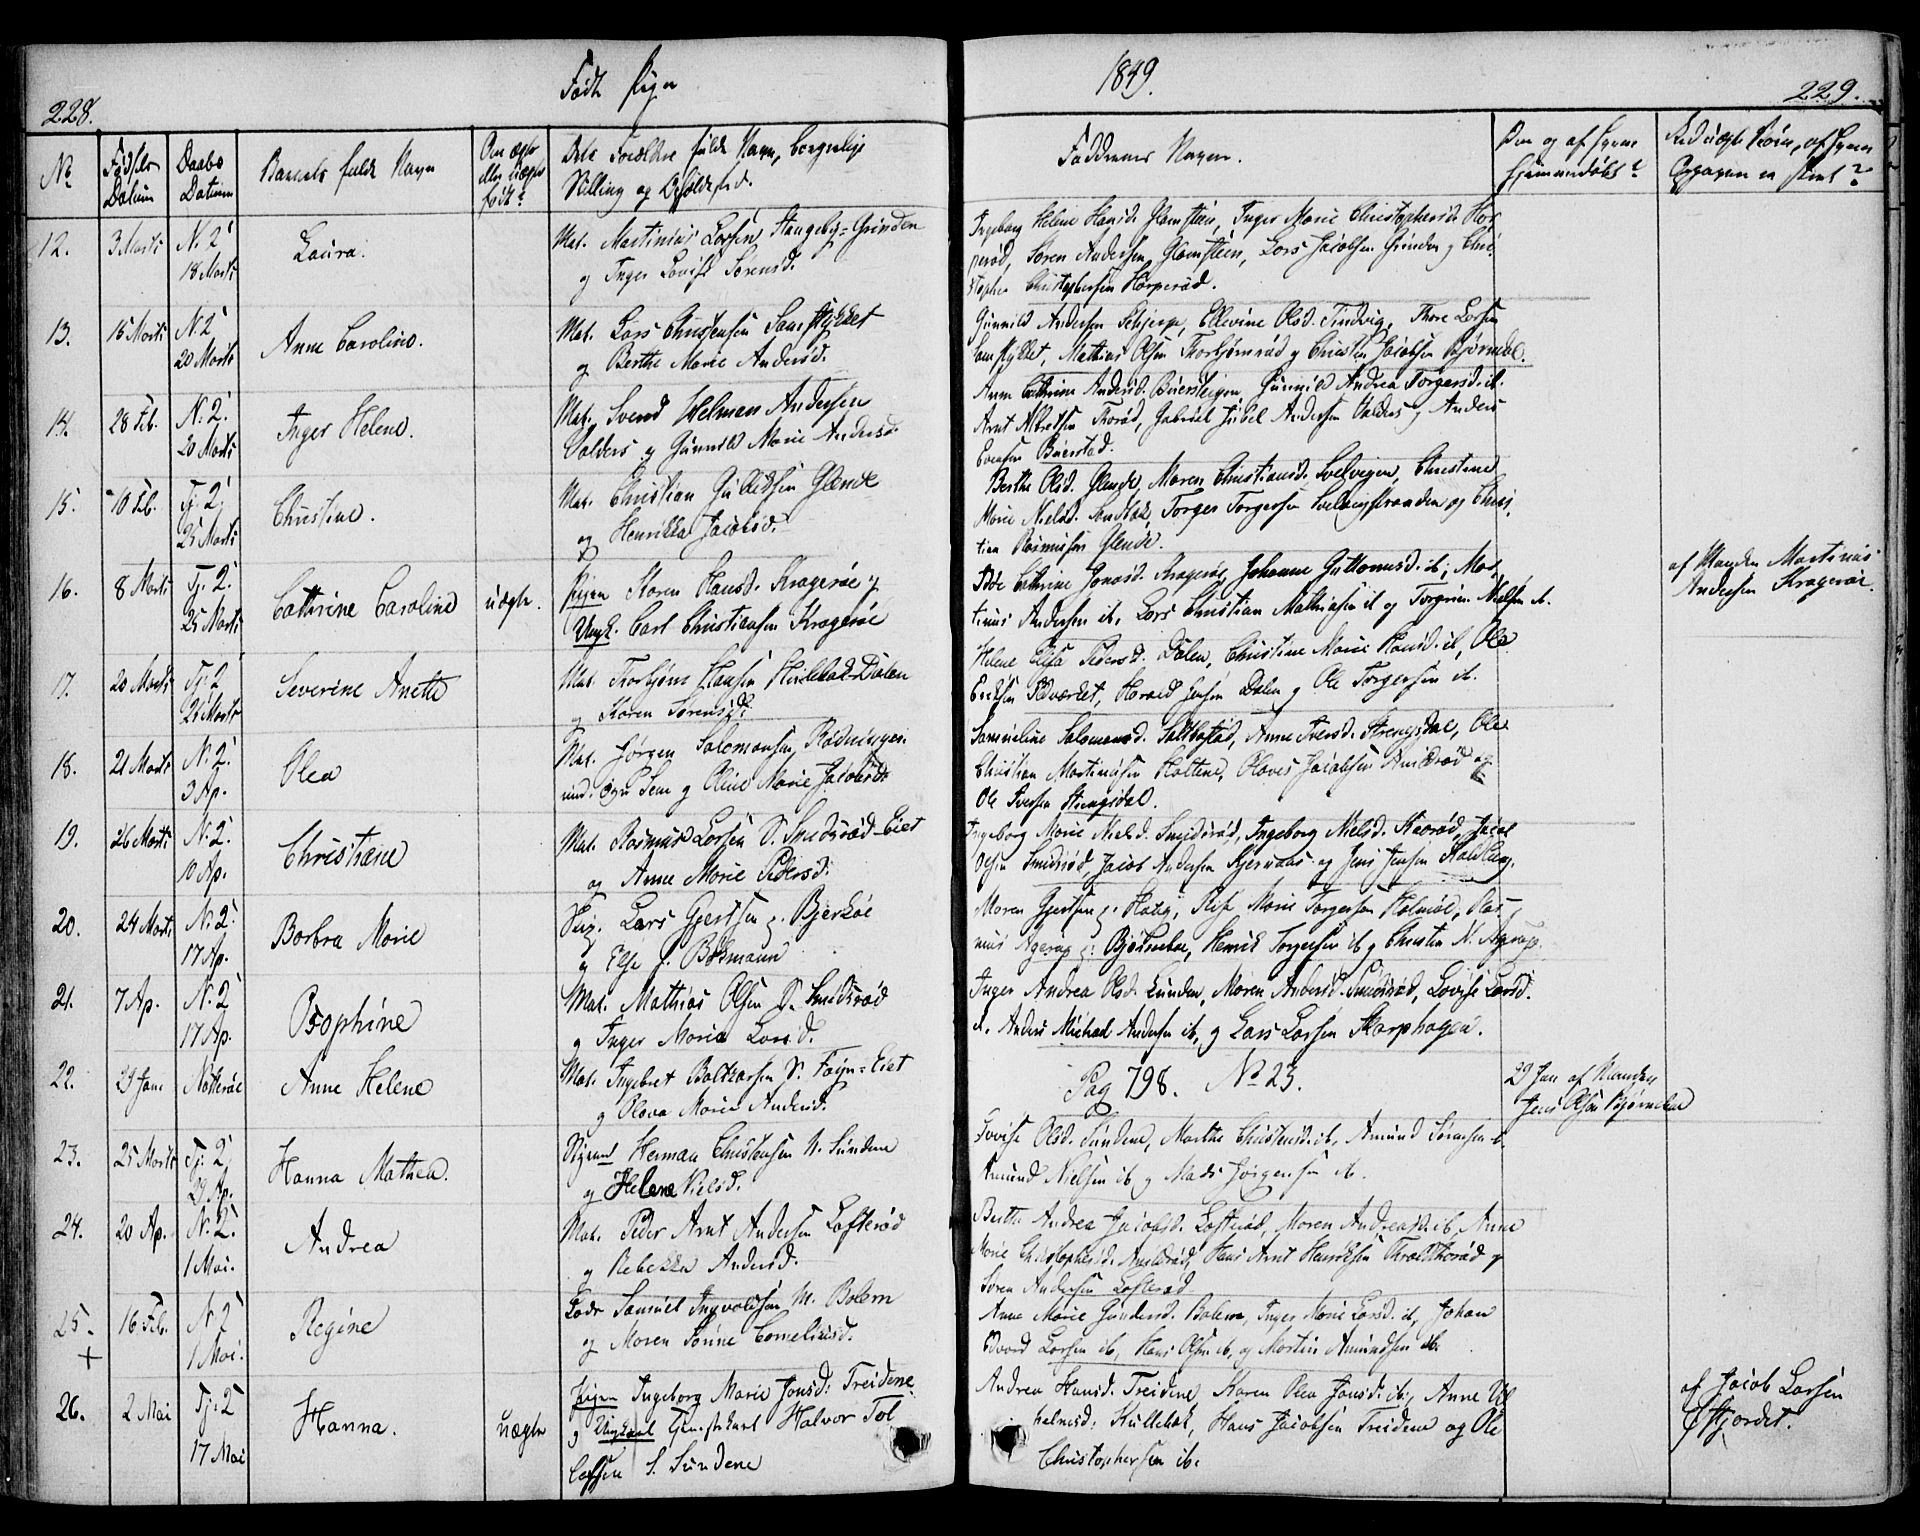 228.
Født Piger
No
Fødsels Datum
Daabs Datum
Barnets fulde Navn
Om ægte eller uægte født?
Dets Forældres fulde Navn, borgerlige
Stilling og
12.
3 Marts
N. 2
18 Marts
Laura.
Mat. Martinius Larsen Stangeby-Grinden
og Inger Lovise Sørensd.
13.
15 Marts
N. 2
20 Marts
Anne Caroline.
Mat. Lars Christensen
og Berthe Marie Andersd.
14.
28 Feb.
N. 2.
20 Marts
Inger Helene.
Mat. Svend Helman Andersen
Valders og Gunnild Marie Andersd.
15.
10 Feb.
Tj. 2
25 Marts
Christine.
Mat. Christian Gulliksen Glende
og Henrikka Jacobsd.
16.
8 Marts
Tj. 2.
25 Marts
Cathrine Caroline
uægte.
Pigen Karen Hansd. Kragerøe og
Ungk. Carl Christiansen Kragerøe
17.
20 Marts
Tj. 2
Severine Anette
Mat. Thorbjørn Hansen Dalen
og Karen Sørensd.
18.
21 Marts
N. 2.
3 Ap.
Olea
Mat. Jørgen Salomonsen,
og Oline Marie Jacobsd.
19.
26 Marts
N. 2.
10 Ap.
Christiane
Mat. Rasmus Larsen S. Smidsrød-Eiet
og Anne Marie Pedersd.
20.
24 Marts
N. 2.
17 Ap.
Barbra Marie
Lars Gjertsen Bjerkøe
og Else f. Bokmann
21.
7 Ap.
N. 2
17 Ap.
Josephine
Mat. Mathias Olsen S. Smidsrød
og Inger Maria Larsd.
22.
29 Jan.
Nøtterøe
Anne Helene
Mat. Ingebret Baltzarsen S. Føyn-Eiet
og Olava Maria Andersd.
23.
25 Marts
Tj. 2
29 Ap.
Hanna Mathea.
Styrmd Herman Christensen N. Sundene
og Helene Nielsd.
24.
20 Ap.
N. 2.
1 Mai.
Andrea
Mat. Peder Arnt Andersen Lofterød
og Rebekka Andersd.
25.
+
16 Feb.
N. 2
1 Mai.
Regine
Lods Samuel Ingvaldsen M. Bolern
og Maren Corneliusd.
26.
2 Mai
Tj. 2
17 Mai
Hanna.
uægte
Pigen Ingeborg Marie Jonsd. Treidene
og Ungkarl Tjenestekarl Halvor Tol
lefsen S. Sundene
1849.
229.
Faddernes Navne.
Om og af hvem
hjemmedøbt?
Ved uægte Børn, af hvem
Opgaven er skeet?
Ingeborg Helene Hansd. Glomsteen, Inger Marie Christophersd. Har
perød, Søren Andersen Glomsteen, Lars Jacobsen Grinden og Chri
stopher Christophersen Harperød.
Gunnild Andersen Ellevine Olsd. Tindvig, Thore Larsen
Mathias Olsen Thorbjørnrød og Christen Jacobsen Bjørndal.
Anne Cathrine Andersd. Gunnild Andrea Torgersd. ib.
Arnt Albretsen Thorød, Gabriel Jubel Andersen Valders og Anders
Evensen Buerstad.
Berthe Olsd. Glende, Maren Christiansd. Solvigen, Christine
Marie Nielsd. Sandbæk, Torger Torgersen og Chris
tian Rasmussen Glende.
Cathrine Jonasd. Kragerøe, Johanne Guttormsd. ib, Mar
tinus Andersen ib, Lars Christian Mathiasen ib og Torgrim Nielsen ib.
af Manden Martinius
Andersen Kragerøe.
Helene Elisa Pedersd. Dalen, Christine Marie Hansd. ib, Ole
Eriksen Harald Jensen Dalen og Ole Torgersen ib.
Samueline Salomonsd. Anne Iversd. Strengsdal, Ole
Christian Martinusen Holtene, Olaves Jacobsen og
Ole Iversen Strengsdal.
Ingeborg Marie Nielsd. Smidsrød, Ingeborg Nielsd. Jacob
Olsen Smidsrød, Jacob Andersen Kjernaas og Jens Jensen
Maren Gjertsen Marie Torgersen Holmøe, Ras
mus Agerup Bjørnebo, Henrik Torgersen ib og Christen N. Agerup.
Inger Andrea Olsd. Lunden, Maren Andersd. Smidsrød, Lovise Larsd.
ib. Anders Michael Andersen ib, og Lars Larsen Skarphagen.
Pag 798. No 23.
29 Jan af Manden
Jens Olsen Bjørnebo
Lovise Olsd. Sundene, Marthe Christensd. ib, Amund Sørensen ib.
Amund Nielsen ib og Mads Jørgensen ib.
Berthe Andrea Jacobsd. Lofterød, Maren Andreasd. ib, Anne
Marie Christophersd. Hans Arnt Henriksen og
Søren Andersen Lofterød
Anne Marie Gundersd. Bolern, Inger Marie Larsd. ib, Johan
Edvard Larsen ib, Hans Olsen ib, og Martin Amundsen ib.
Andrea Hansd. Treidene, Karen Olea Jonsd. ib, Anne Wil
helmsd. Kullebæk, Hans Jacobsen Treidene og Ole
Christophersen ib.
af Jacob Larsen